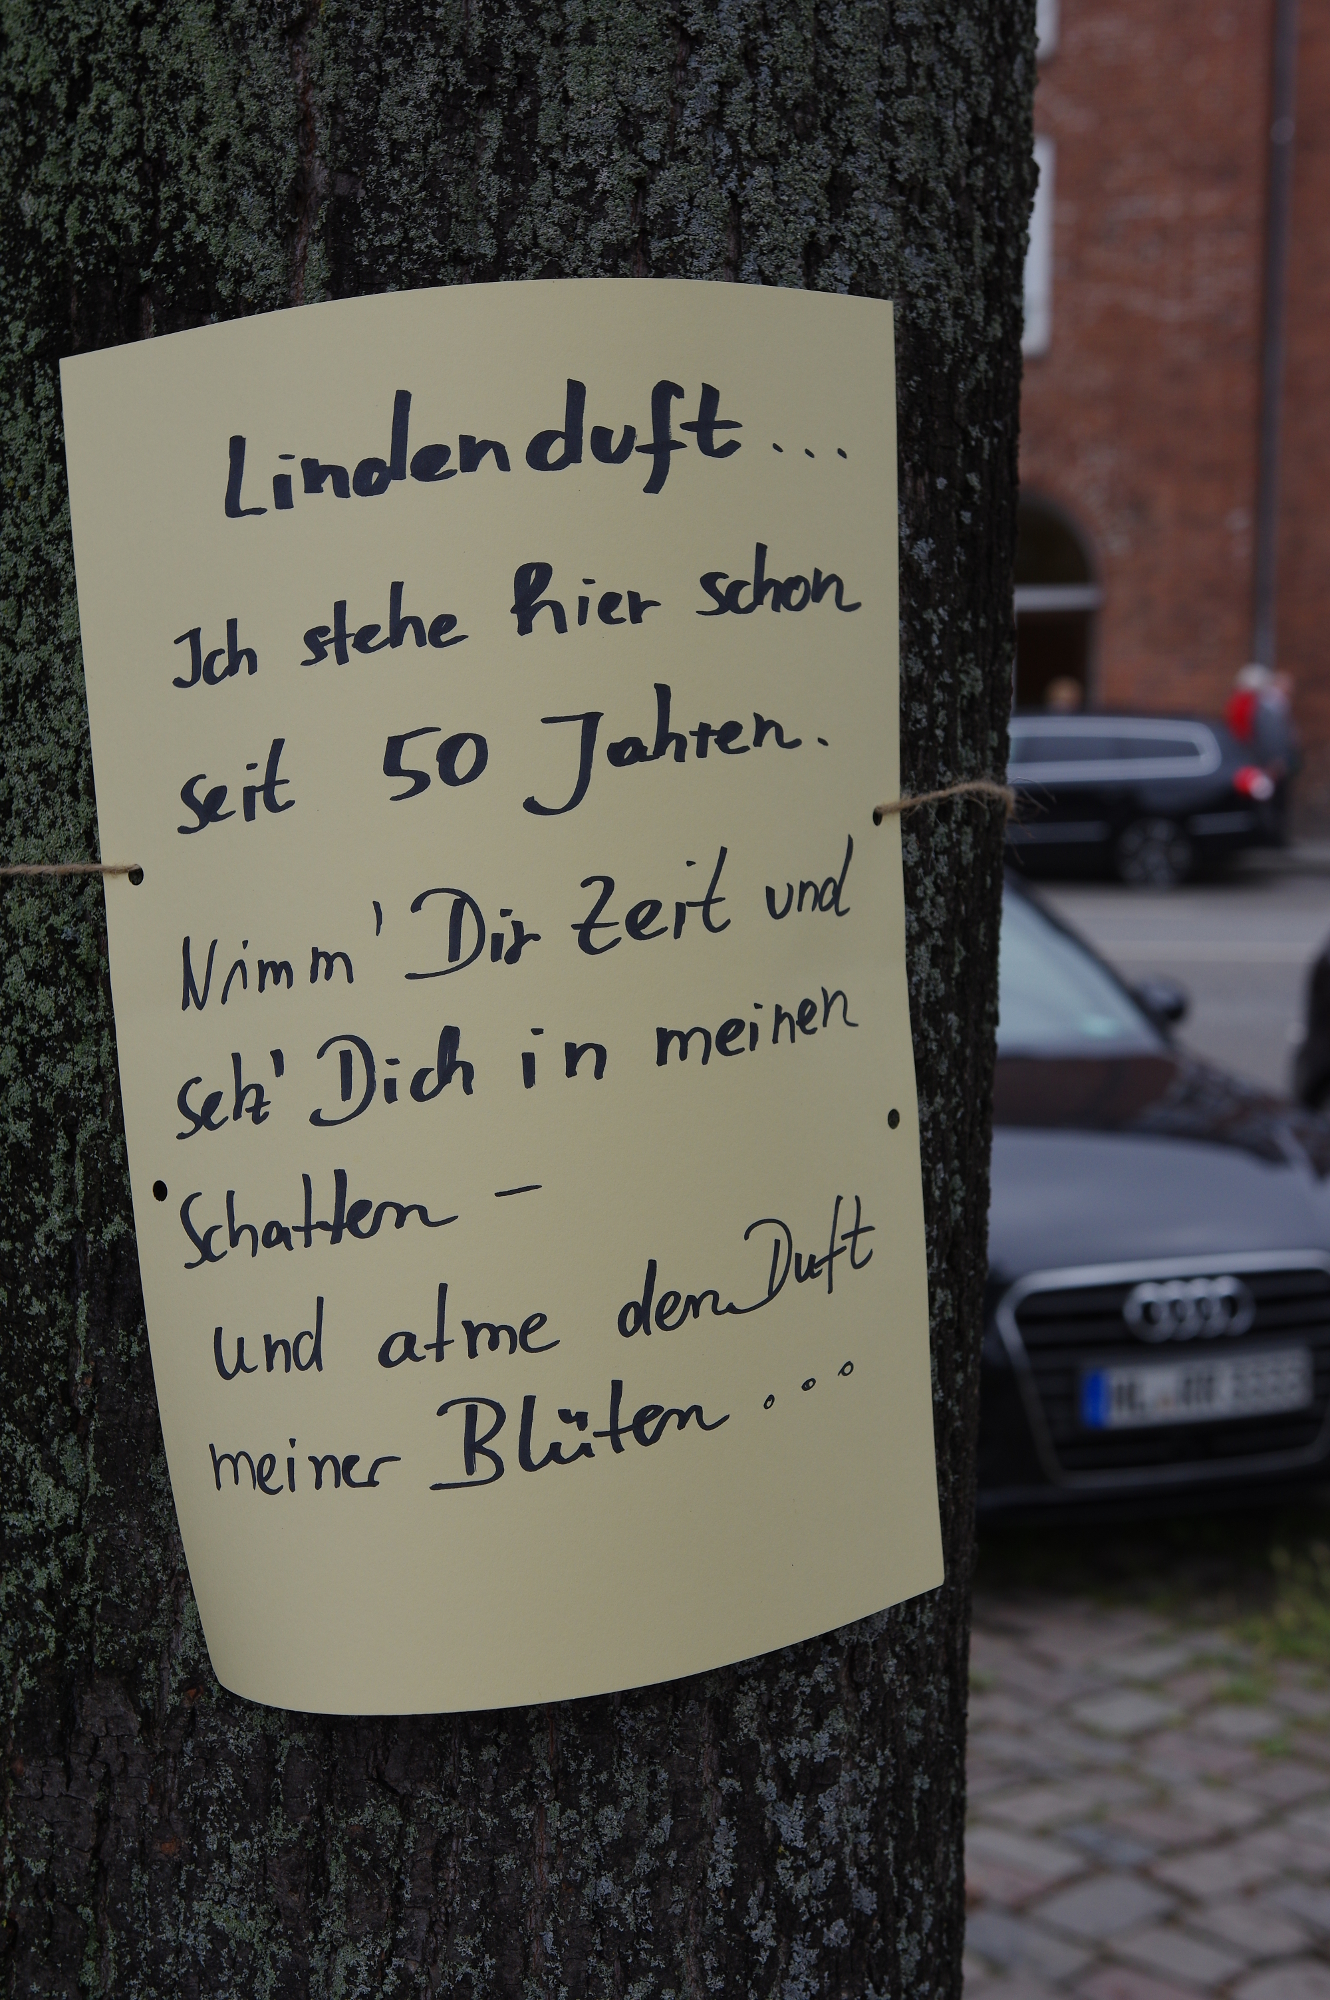 Lindenduft...
Ich stehe hier schon
seit 50 Jahren.
Nimm' Dir Zeit und
setz' Dich in meinen
Schatten –
und atme den Duft
meiner Blüten...